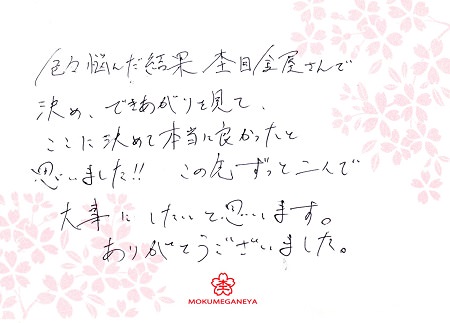 色々悩んだ結果 杢目金屋さんで
決め、できあがりを見て、
ここに決めて本当に良かったと
思いました!! この先ずっと二人で
大事にしたいと思います。
ありがとうございました。
MOKUMEGANEYA